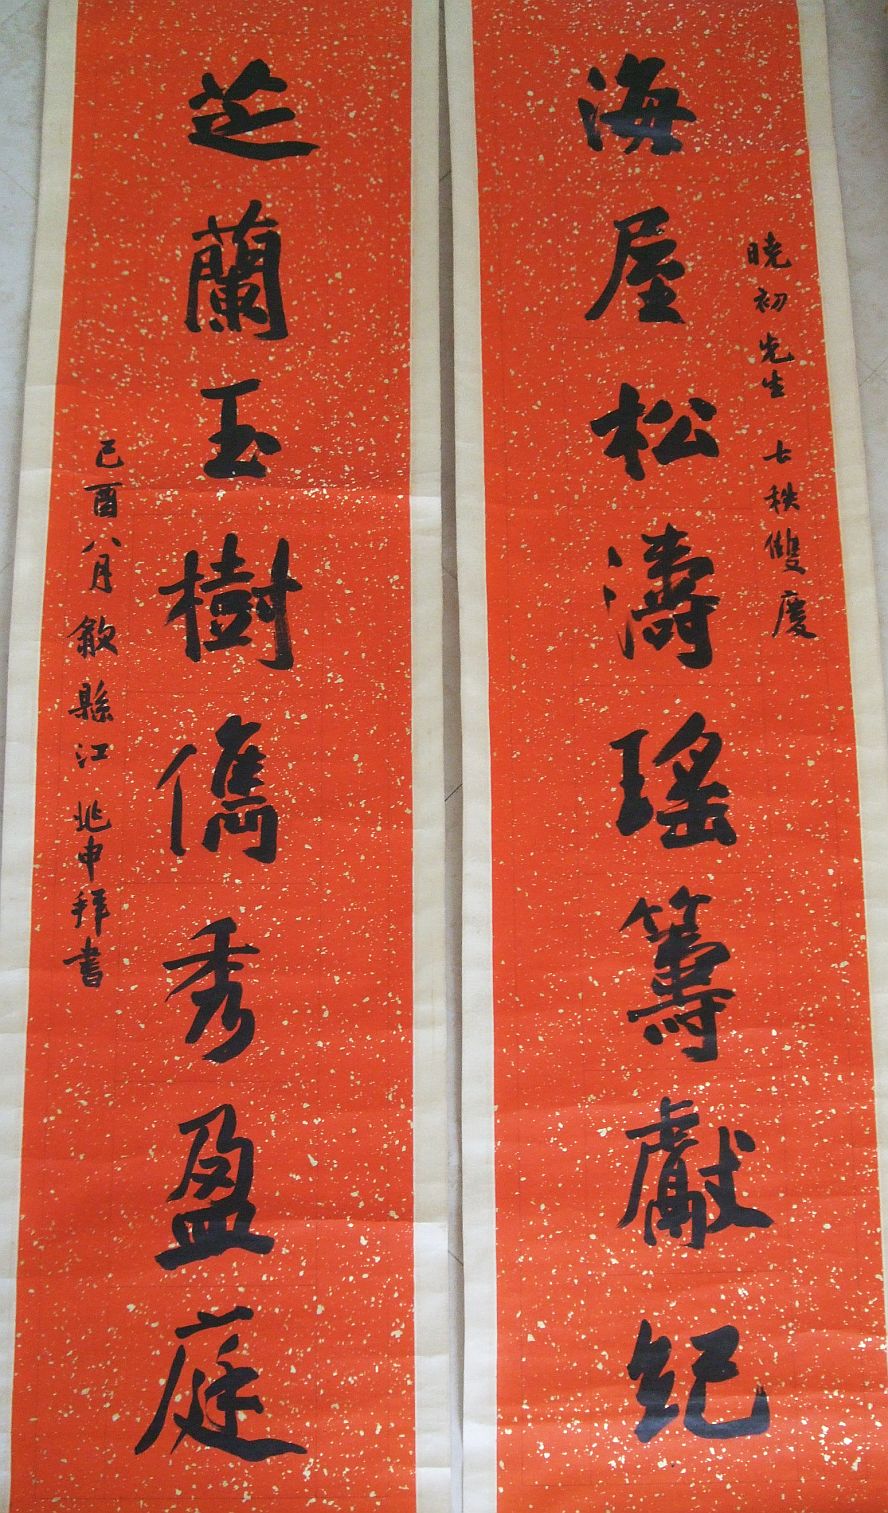 曉初先生 七秩雙慶
海屋松濤瑤籌獻紀
芝蘭玉樹儁秀盈庭
己酉八月歙縣江兆申拜書